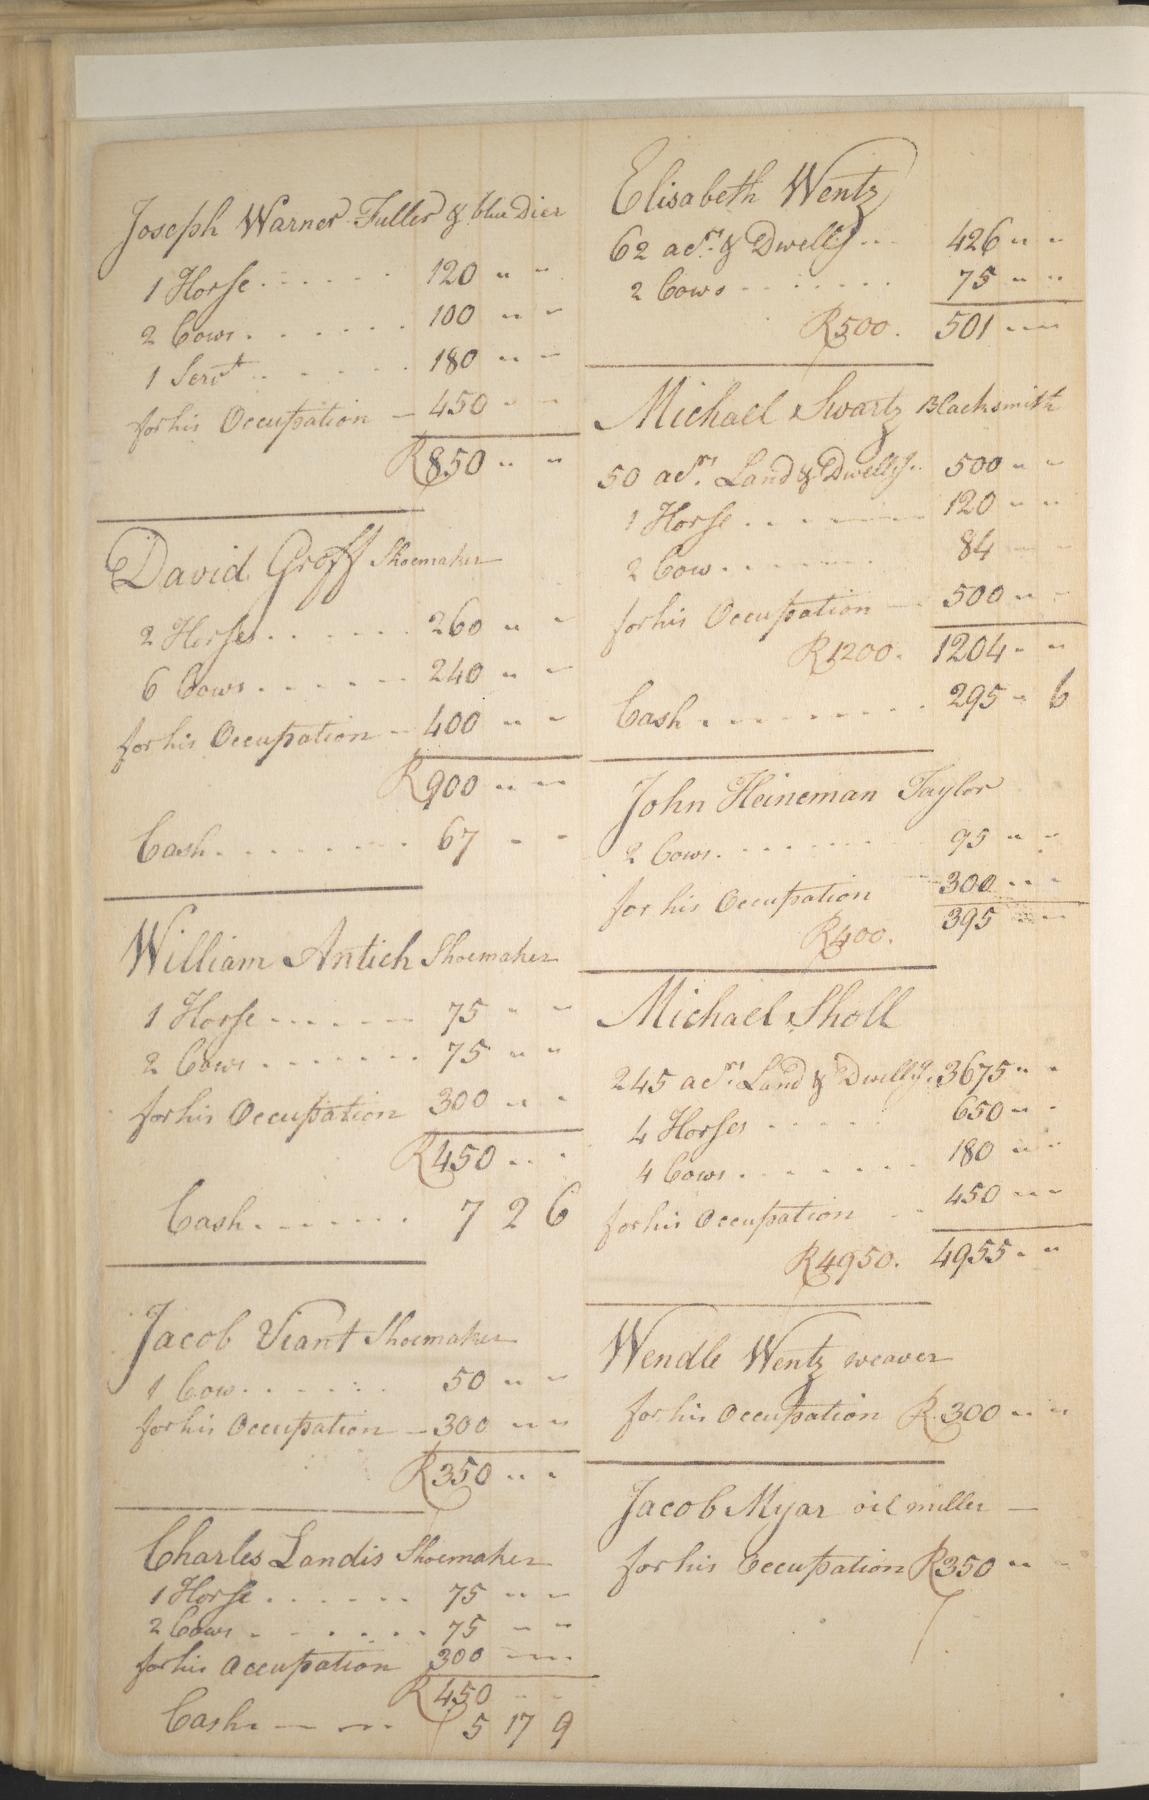 Joseph Warner Fuller & blue Dier
1 Horse . . . . . 120 " "
2 Cows . . . . . . 100 " "
1 Servt . . . . . . 180 " "
for his Occupation — 450 " "
R850 " "
David Groff Shoemaker
2 Horses . . . . . . 260 " "
6 Cows . . . . . . 240 " "
for his Occupation — 400 " "
R900 " "
Cash . . . . . . . . 67 " "
William Antich Shoemaker
1 Horse . . . . . . 75 " "
2 Cows . . . . . . . 75 " "
for his Occupation 300 " "
R450 " "
Cash . . . . . . . 7 2 6
Jacob Viant Shoemaker
1 Cow . . . . . . 50 " "
for his Occupation — 300 " "
R350 " "
Charles Landis Shoemaker
1 Horse . . . . . . 75 " "
2 Cows . . . . . . 75 " "
for his Occupation 300 " "
R450 " "
Cash . — — 5 17 9
Elisabeth Wentz
62 acrs. & Dwellg . . 426 " "
2 Cows . . . . . . . 75 " "
R500. 501 " "
Michael Swartz Blacksmith
50 acrs. Land & Dwellg . . 500 " "
1 Horse . . . . . . . 120 " "
2 Cow . . . . . . . 84 " "
for his Occupation — 500 " "
R1200. 1204 " "
Cash . . . . . . . . . 295 " 6
John Heineman Taylor
2 Cows . . . . . . . 95 " "
for his Occupation 300 " "
R400. 395 " "
Michael Sholl
245 acrs. Land & Dwellg . 3675 " "
4 Horses . . . . . 650 " "
4 Cows . . . . . . . 180 " "
for his Occupation . . 450 " "
R4950. 4955 " "
Wendle Wentz weaver
for his Occupation R300 " "
Jacob Myar oil miller —
for his Occupation R350 " "